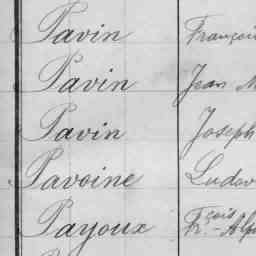 Pavin Françoi
Pavin Jean M
Pavin Joseph
Pavoine Ludov
Payoux Fr.çois - Alp